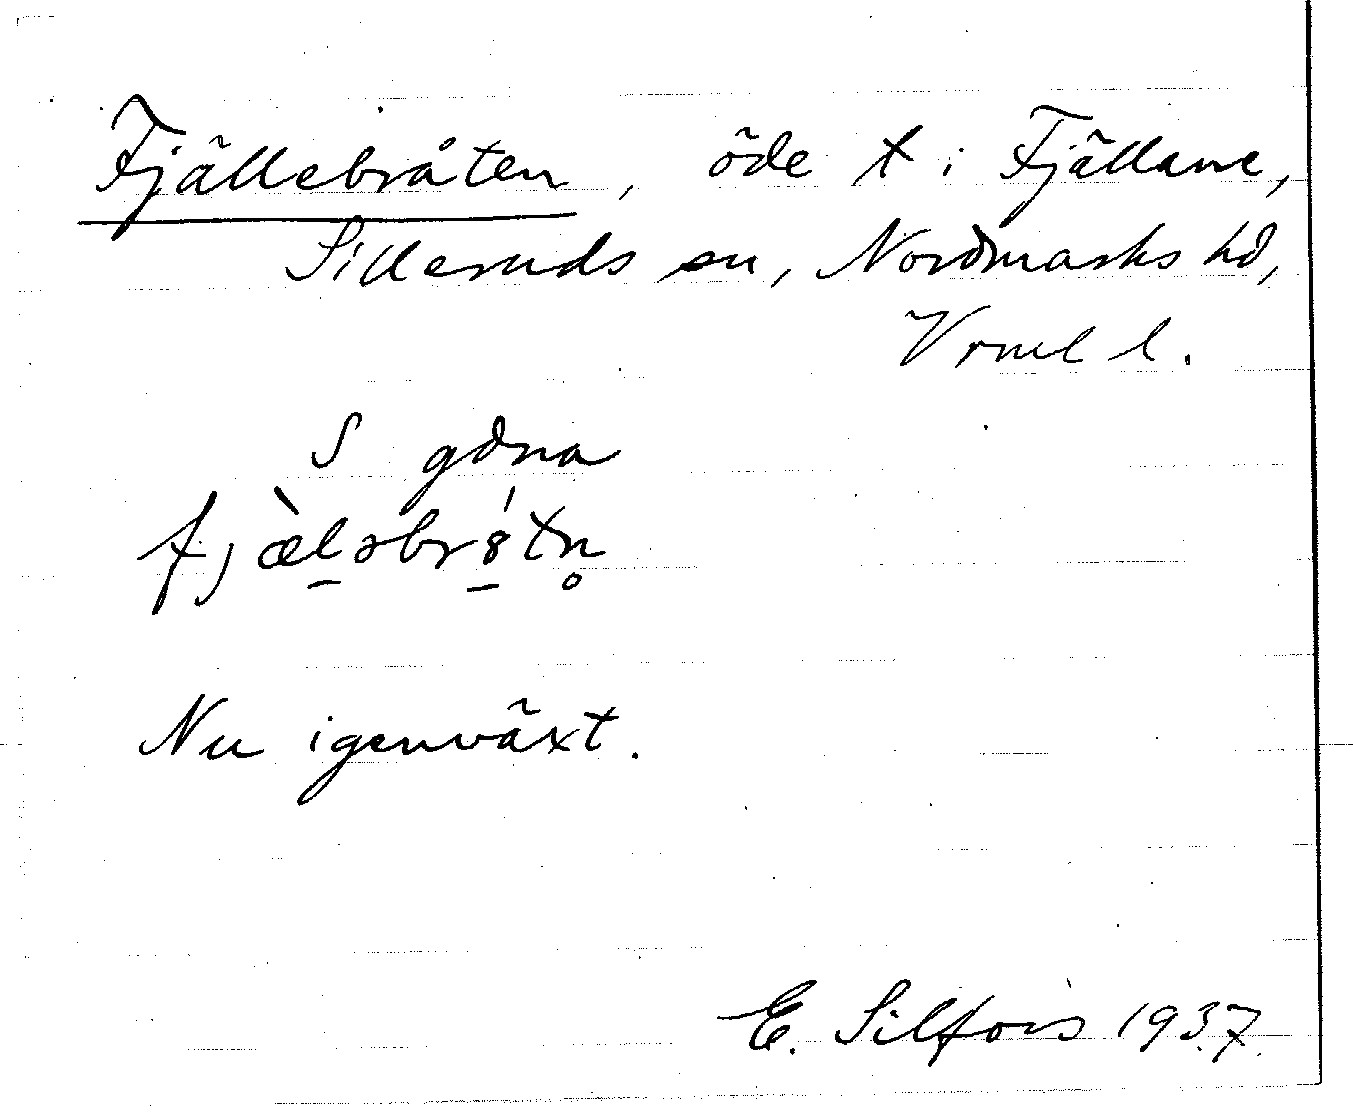 Fjällebråten, öde t i Fjällane,
Silleruds sn, Nordmarks hd,
Vrml l.
S gdna
fjæ̀l̠əbr8̠́tn̥
Nu igenväxt.
E. Silfors 1937.